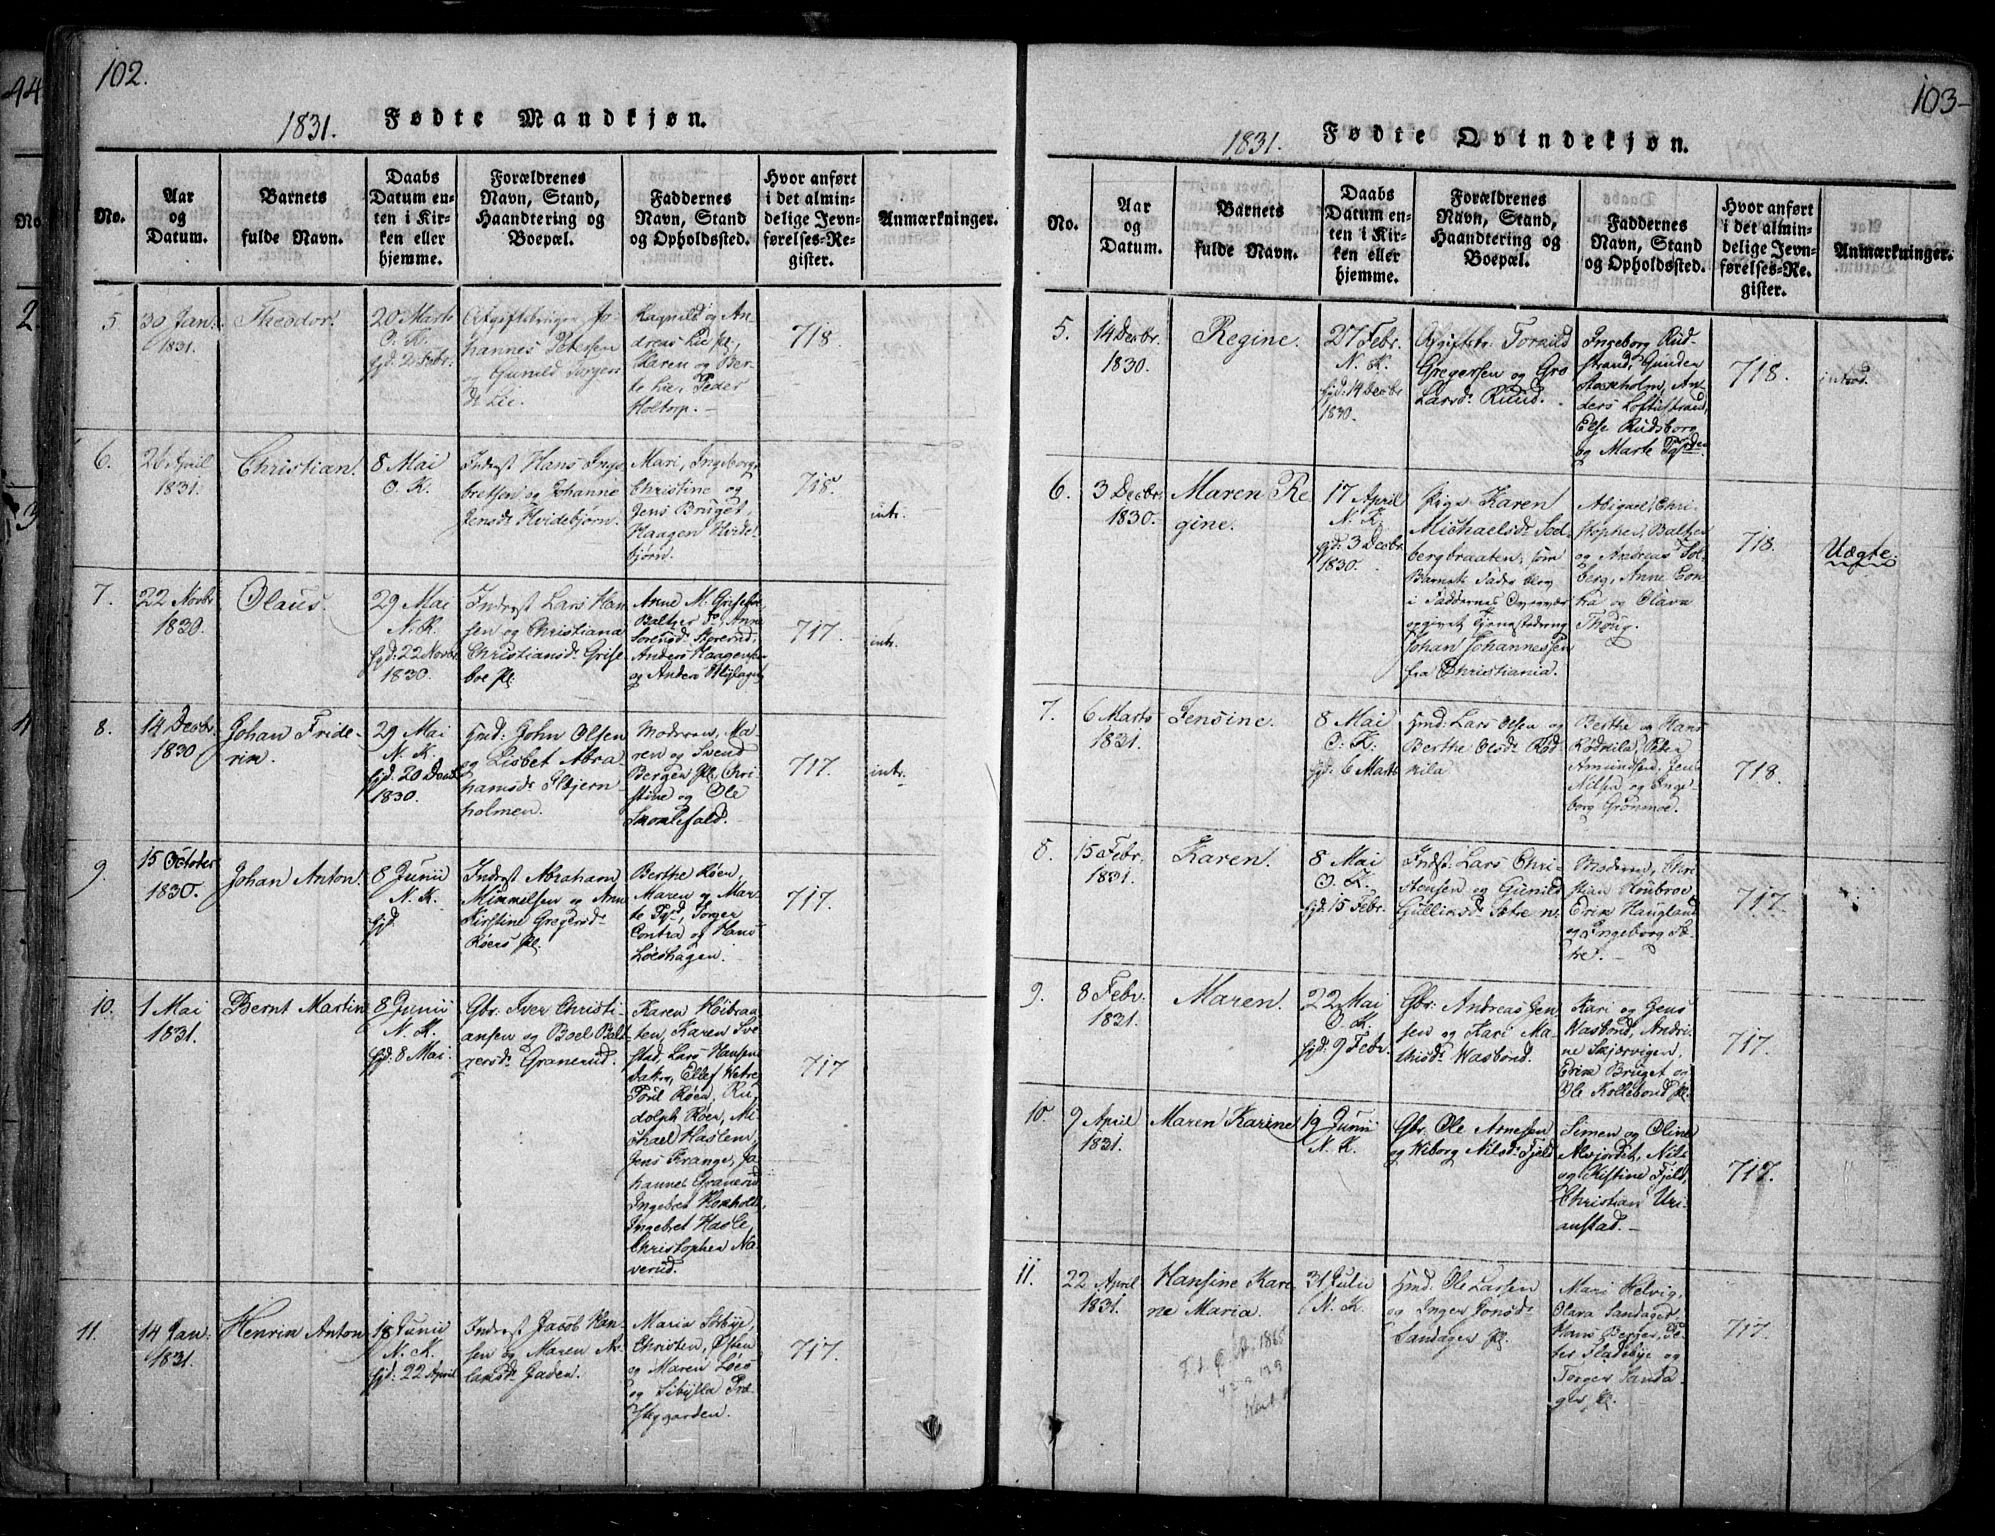 102.
1831. Fødte Mandkjøn.
No.
Aar
og
Datum.
Barnets
fulde Navn.
Daabs
Datum en-
ten i Kir-
ken eller
hjemme.
Forældrenes
Navn, Stand,
Haandtering og
Boepæl.
Faddernes
Navn, Stand
og Opholdssted.
Hvor anført
i det almin-
delige Jevn-
førelses-Re-
gister.
Anmærkninger.
5
30 Jan.
1831.
Theodor.
20 Marts
O. K.
hjd. 2 Febr.
Afgiftsbruger Jo-
hannes Petersen
og Gunild Torger
dr Lie.
Ragnild og An-
dreas Lie pl.,
Karen og Ber-
te Lie, Peder
Holtorp. –
718.
6.
26 April
1831.
Christian.
8 Mai
O. K.
Inderst Hans Inge
bretsen og Johanne
Jensdr Hvidebjørn.
Mari, Ingeborg,
Christine og
Jens Bruget,
Haagen Hvide-
bjørn.
718.
intr.
7.
22 Novbr
1830.
Olaus.
29 Mai
N. K.
hjd: 22 Novbr
1830.
Inderst Lars Han-
sen og Christiana
Christiansdr Grise-
boe pl:
Arne M. Grisefos,
Baltzer do, Anne
Anders Haagen
og Anders
717.
intr.
8.
14 Decbr.
1830
Johan Fride-
rik.
29 Mai
N. K.
hjd: 20 Decbr
1830.
Hmd: John Olsen
og Lisbet Abra-
hamsdr Stjern-
holmen.
Moderen, Ma-
ren og Svend
Bergen pl., Chri-
stine og Ole
717.
intr.
9.
15 October
1830.
Johan Anton.
8 Junii
N. K.
hjd.
Inderst Abraham
Mimmelsen og Ann
Kirstine Gregersdr
Røers pl.
Berthe Røen,
Maren og Mar-
te Torger
Contra og Hans
Løeshagen.
717.
10.
1 Mai
1831.
Bernt Martin
8 Junii
N. K.
hjd: 8 Mai.
Gbr: Iver Christi-
ansen og Boel Bal-
zersdr Granerud.
Karen Høibraa-
ten, Karen Sve
stad, Lars Hansen
Dakor, Ellef Wetre
Toril Røen, Ru-
dolph Røer, Mi-
chael Haslem,
Jens Krange, Jo-
hannes Granerud
Ingebret Roxholt,
Ingebret Hasle,
Christopher Na-
verud.
717
11.
14 Jan.
1831.
Henrik Anton
18 Junii
N. K.
hjd: 22 April
Inderst Jacob Han-
sen og Maren As-
laksdr Jaden.
Maria Sorbye,
Christen, Østen
og Maren Løes
og Sibylla Præ-
styggarden.
717.
103
1831. Fødte Qvindekjøn.
No.
Aar
og
Datum.
Barnets
fulde Navn.
Daabs
Datum en-
ten i Kir-
ken eller
hjemme.
Forældrenes
Navn, Stand,
Haandtering og
Boepæl.
Faddernes
Navn, Stand
og Opholdssted.
Hvor anført
i det almin-
delige Jevn-
førelses-Re-
gister.
Anmærkninger.
5.
14 Decbr.
1830.
Regine.
27 Febr.
N. K.
hjd: 14 Decbr
1830.
Afgiftsbr. Torkild
Gregersen og Gro
Larsdr Ruud.
Ingeborg Rud-
strand, Gunder
Roxholm, An-
ders Loftustrand,
Else Rudsborg
og Marte
718.
introd.
6.
3 Decbr.
1830.
Maren Re
gine.
17 April
N. K.
hjd: 3 Decbr
1830.
Pige Karen
Michaelsdr Sol-
bergbraaten, som
Barnets Fader blev
i Faddernes Overvær
opgivet Tjenestedreng
Johan Johannessen
fra Christiania.
Abigael, Chri-
stopher, Baltzer
og Andreas Sol-
berg, Anne Con-
tra og Olava
Thorig.
718.
Uægte.
7.
6 Marts
1831.
Jensine.
8 Mai
O. K.
hjd: 6 Marts
Hmd: Lars Olsen og
Berthe Olsdr Rød-
kila
Berthe og Hans
Rødkila, Peter
Amundsen, Jens
Nilsen og Inge-
borg Grønmoe.
718.
8.
15 Febr.
1831.
Karen.
8 Mai
O. K.
hjd: 15 Febr.
Indst: Lars Chri-
stensen og Gunild
Gulliksdr Sætre n.
Moderen, Chri-
stian Houbroe,
Erik Haugland
og Ingeborg Sæ-
tre. –
717.
9.
8 Febr.
1831.
Maren.
22 Mai
O. K.
hjd: 9 Febr.
Gbr: Andreas Jen
sen og Kari Ma-
thisdr Wasbond.
Kari og Jens
Wasbond, Andri-
ne Skjærvigen,
Erik Bruget og
Ole Kollebond pl.
717.
10.
9 April
1831.
Maren Karine
19 Junii
N. K.
Gbr: Ole Arnesen
og Wiborg Nilsdr Fjeld
Simen og Oline
Alvjordet, Nils
og Kistine Fjeld,
Christian Uri-
anstad. –
717.
11.
22 April
1831.
Hansine Kare
ne Maria.
31 Julii
N. K.
Hmd. Ole Larsen
og Inger Jonsdr
Sandager pl.
Mari Helvig,
Olara Sandager
Hans Berger, Pe-
ter Fladebye og
Torger Sanda-
ger pl.
717.
1865